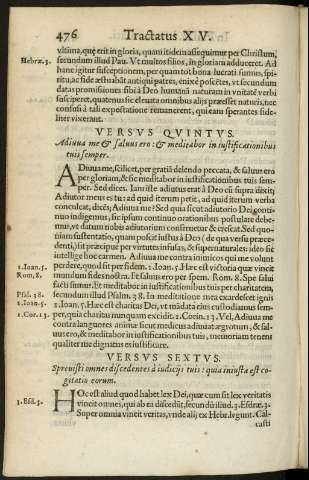 476 Tractatus XV.
vltima, quę erit in gloria, quam itidem assequimur per Christum,
Hebræ. 3. secundum illud Pau. Vt multos filios, in gloriam adduceret. Ad
hanc igitur susceptionem, per quam tot bona lucrati sumus, spiri-
tu, ac fide æstuabāt antiqui patres, enixè poscētes, vt secundum
datas promissiones sibi à Deo humanā naturam in vnitatē verbi
susciperet, quatenus sic eleuata omnibus alijs præesset naturis, nec
confusi à tali expectatione remanerent, qui eam sperantes fide-
liter vixerant.
VERSVS QVINTVS.
Adiuua me & saluus ero: & meditabor in iustificationibus
tuis semper.
ADiuua me, scilicet, per gratiā delendo peccata, & saluus ero
per gloriam, & sic meditabor in iustificationibus tuis sem-
per. Sed dices. Iam iste adiutus erat à Deo cū supra dixit;
Adiutor meus es tu: ad quid iterum petit, ad quid iterum verba
conculcat, dicēs; Adiuua me? Sed quia sicut adiutorio Dei conti-
nuo indigemus, sic ipsum continuo orationibus postulare debe-
mus, vt datum nobis adiutorium conseruetur & crescat. Sed quo-
niam sustentatio, quam poscit iustus à Deo (de qua versu præce-
denti,) fit præcipuè per virtutes infusas, & supernaturales: ideo sic
intellige hoc carmen. Adiuua me contra inimicos qui me volunt
1. Ioan. 5. perdere, quod sit per fidem. 1. Ioan. 5. Hæc est victoria quæ vincit
Rom. 8. mundum fides nostra. Et saluus ero per spem. Rom. 8. Spe salui
facti sumus. Et meditabor in iustificationibus tuis per charitatem,
Psal. 38. secundum illud Psalm. 38. In meditatione mea exardescet ignis
1. Ioan. 5. 1. Ioan. 5. Hæc est charitas Dei, vt mādata eius custodiamus sem-
1. Cor. 13. per, quia charitas nunquam excidit. 1. Corin. 13. Vel, Adiuua me
contra languores animæ sicut medicus adiuuat ægrotum, & sal-
uus ero, & meditabor in iustificationibus tuis, memoriam tenens
qualiter tu dignatus es iustificare.
VERSVS SEXTVS.
Spreuisti omnes discedentes à iudicijs tuis: quia iniusta est co-
gitatio eorum.
3. Esd. 3. HOc est aliud quod habet lex Dei, quæ cum sit lex veritatis
vincit omnes, qui ab ea discedūt, secundū illud. 3. Esdræ. 3.
Super omnia vincit veritas, vnde alij ex Hebr. legunt. Cal-
casti